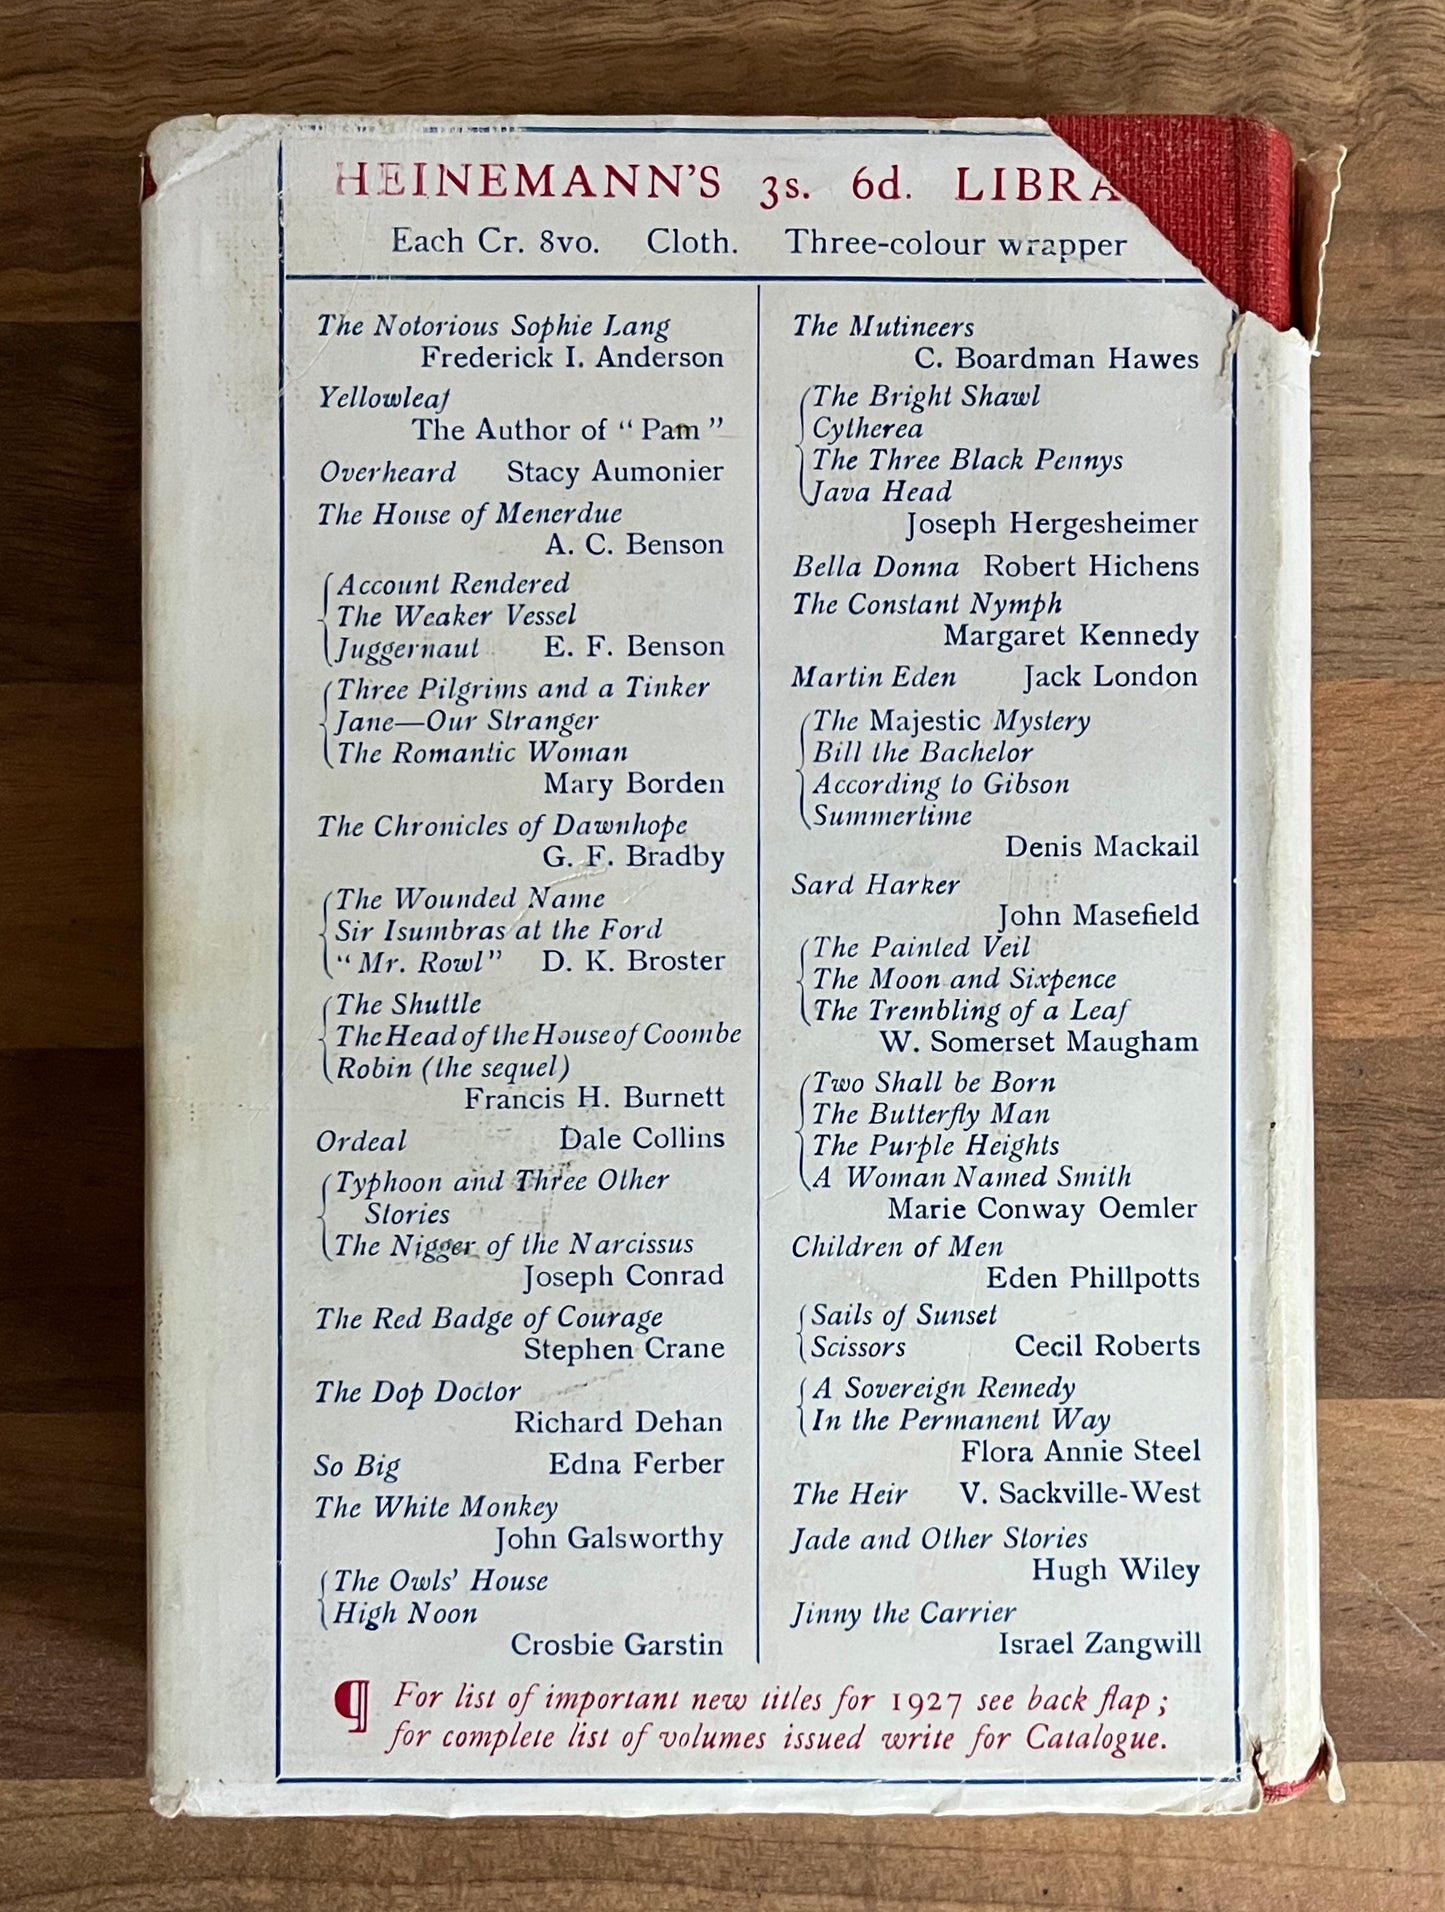 HEINEMANN'S 3s. 6d. LIBRA
Each Cr. 8vo. Cloth. Three-colour wrapper
The Notorious Sophie Lang
Frederick I. Anderson
Yellowleaf
The Author of “Pam”
Overheard Stacy Aumonier
The House of Menerdue
A. C. Benson
Account Rendered
The Weaker Vessel
Juggernaut E. F. Benson
Three Pilgrims and a Tinker
Jane—Our Stranger
The Romantic Woman
Mary Borden
The Chronicles of Dawnhope
G. F. Bradby
The Wounded Name
Sir Isumbras at the Ford
“Mr. Rowl” D. K. Broster
The Shuttle
The Head of the House of Coombe
Robin (the sequel)
Francis H. Burnett
Ordeal Dale Collins
Typhoon and Three Other
Stories
The Nigger of the Narcissus
Joseph Conrad
The Red Badge of Courage
Stephen Crane
The Dop Doctor
Richard Dehan
So Big Edna Ferber
The White Monkey
John Galsworthy
The Owls' House
High Noon
Crosbie Garstin
The Mutineers
C. Boardman Hawes
The Bright Shawl
Cytherea
The Three Black Pennys
Java Head
Joseph Hergesheimer
Bella Donna Robert Hichens
The Constant Nymph
Margaret Kennedy
Martin Eden Jack London
The Majestic Mystery
Bill the Bachelor
According to Gibson
Summertime
Denis Mackail
Sard Harker
John Masefield
The Painted Veil
The Moon and Sixpence
The Trembling of a Leaf
W. Somerset Maugham
Two Shall be Born
The Butterfly Man
The Purple Heights
A Woman Named Smith
Marie Conway Oemler
Children of Men
Eden Phillpotts
Sails of Sunset
Scissors Cecil Roberts
A Sovereign Remedy
In the Permanent Way
Flora Annie Steel
The Heir V. Sackville-West
Jade and Other Stories
Hugh Wiley
Jinny the Carrier
Israel Zangwill
¶ For list of important new titles for 1927 see back flap;
for complete list of volumes issued write for Catalogue.